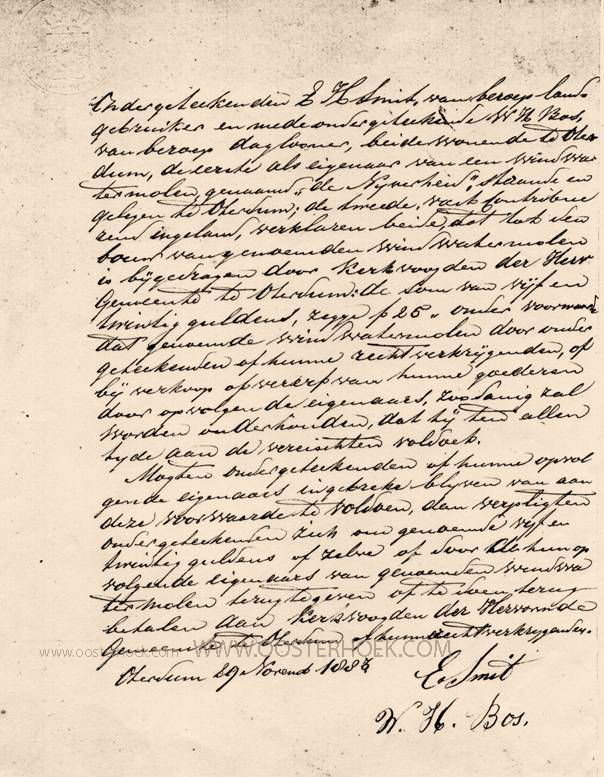 Ondergeteekenden E H Smit, van beroep land
gebruiker en mede ondergeteekende W H Bos,
van beroep daglooner, beide wonende te Oter
dum, de eerste als eigenaar van een wind wa
termolen, genaamd „de Nijverheid", staande en
gelegen te Oterdum; de tweede, vast contribue
rend ingeland, verklaren beide, dat tot den
bouw van genoemden wind watermolen
is bijgedragen door Kerkvoogden der Herv.
Gemeente te Oterdum: de som van vijf en
twintig guldens, zegge f 25 „ onder voorwaarde
dat genoemde wind watermolen door onder
geteekenden of hunne rechtverkrijgenden, of
bij verkoop of vererf van hunne goederen
door opvolgende eigenaars, zoodanig zal
worden onderhouden, dat hij ten allen
tyde aan de vereischten voldoet.
Mogten ondergeteekenden of hunne opvol
gende eigenaars in gebreke blijven van aan
deze voorwaarde te voldoen, dan verpligten
ondergeteekenden zich om genoemde vijf en
twintig guldens of zelve of door de hun op
volgende eigenaars van genoemden wind wa
termolen terug te geven of te doen terug
betalen aan Kerkvoogden der Hervormde
Gemeente te Oterdum of hunne rechtverkrygenden.
www.oosterhoek.com WWW.OOSTERHOEK.COM
Oterdum 29 Novemb
E Smit
W. H. Bos.